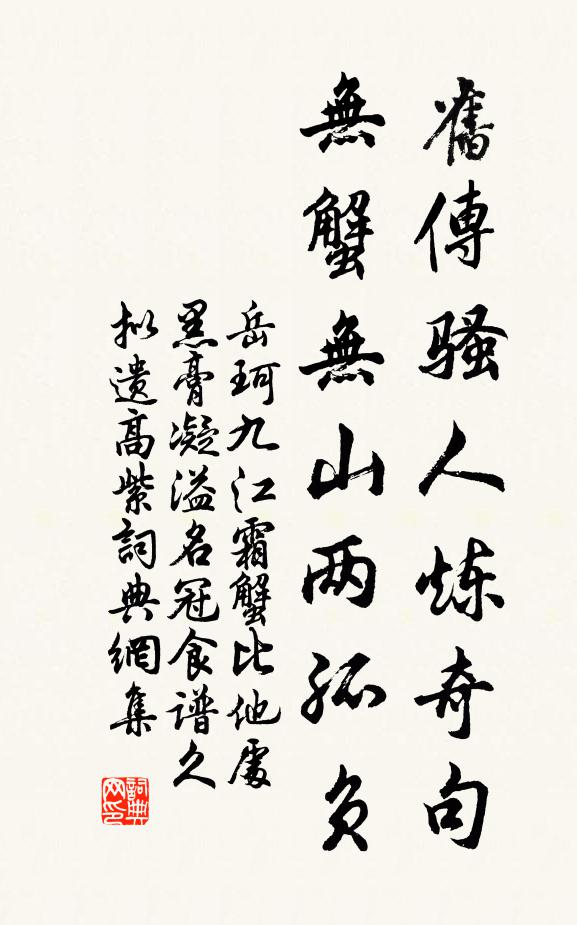 舊傳騷人炼奇句
無蟹無山两孤负
岳珂九江霜蟹比他處
黑膏凝溢名冠食谱久
拟遗高紫詞典網集
詞典网印